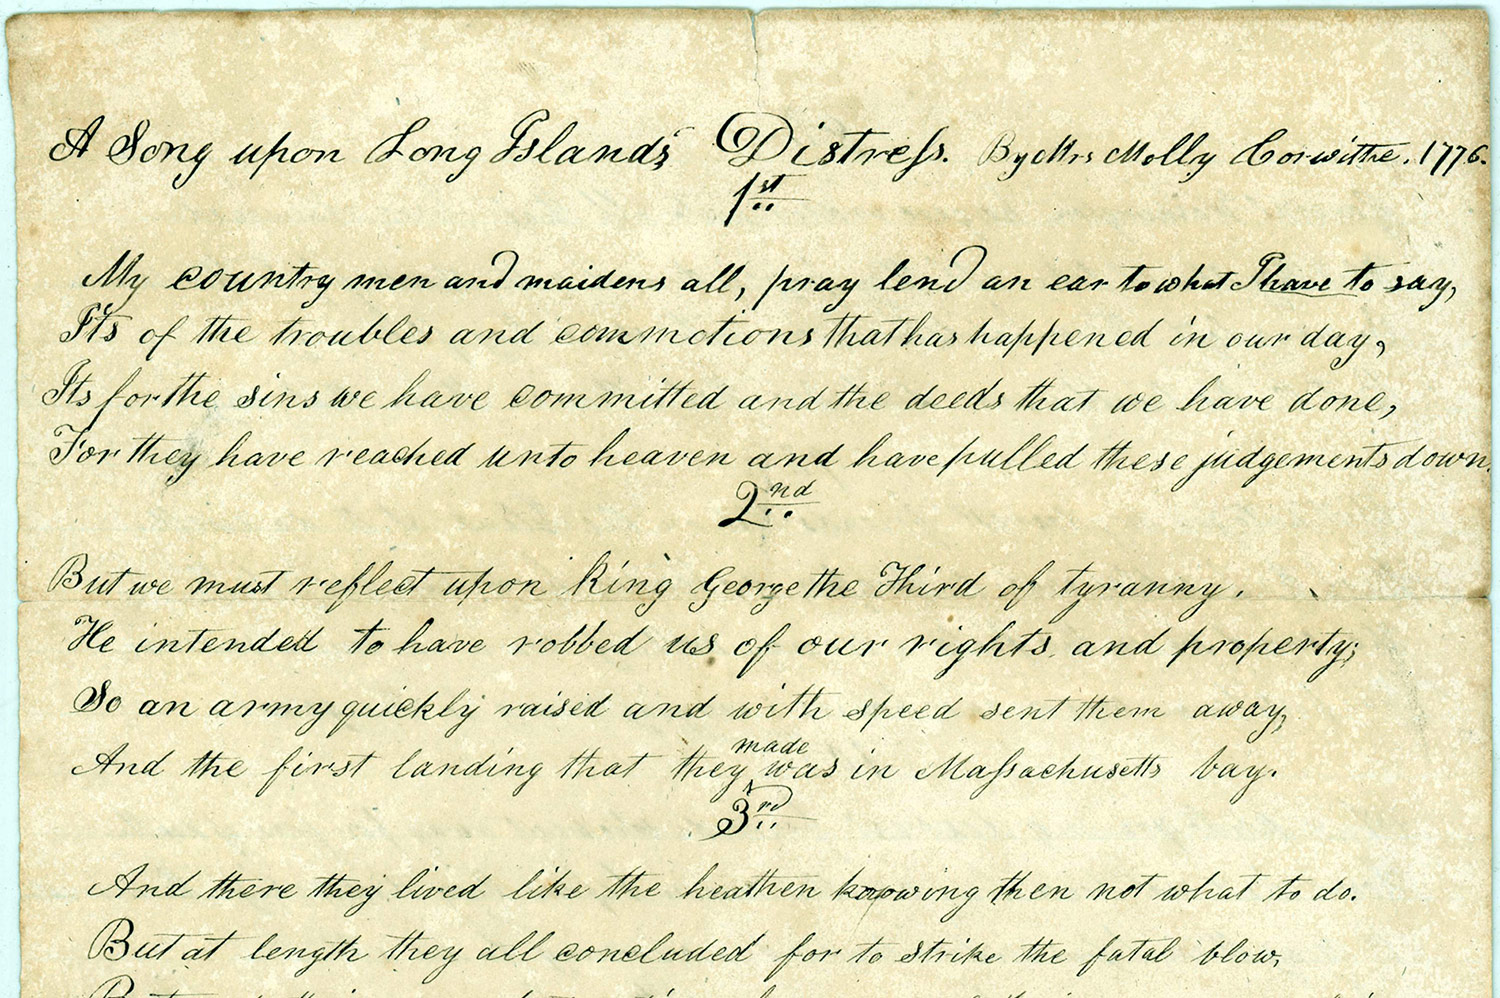 A Song upon Long Islands Distress. By Mrs Molly Corwithe. 1776.
1st
My country men and maidens all, pray lend an ear to what I have to say,
Its of the troubles and commotions that has happened in our day,
Its for the sins we have committed and the deeds that we have done,
For they have reached unto heaven and have pulled these judgements down.
2nd
But we must reflect upon King George the Third of tyranny.
He intended to have robbed us of our rights and property;
So an army quickly raised and with speed sent them away,
And the first landing that they made was in Massachusetts bay.
3rd
And there they lived like the heathen knowing then not what to do.
But at length they all concluded for to strike the fatal blow,